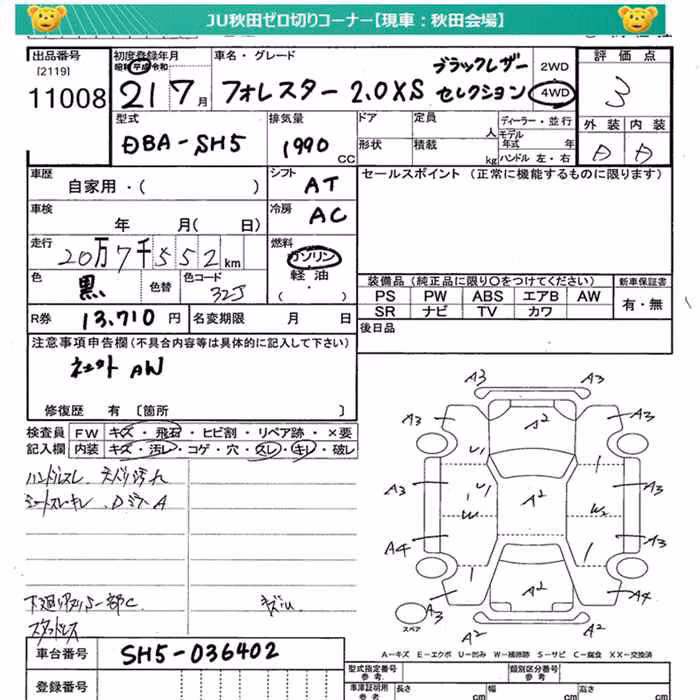 JU秋田ゼロ切りコーナー【現車：秋田会場】
出品番号
[2119]
11008
初度登録年月
昭和 平成 令和
21 7月
車名・グレード
フォレスター 2.0XS
ブラックレザー
セレクション
2WD
4WD
評価点
3
外装 内装
型式
DBA-SH5
排気量
1990
CC
ドア
定員
人
形状
積載
kg
ディーラー・並行
モデル
年式 年
ハンドル 左・右
車歴
自家用・( )
シフト
AT
セールスポイント (正常に機能するものに限ります)
車検
年 月( 日)
冷房
AC
走行
20万7千552km
燃料
ガソリン
軽油
( ・ )
色
黒
色替
色コード
32J
装備品 (純正品に限り○をつけてください)
新車保証書
PS PW ABS エアB AW
SR ナビ TV カワ
有・無
R券 13,710円
名変期限 月 日
後日品
注意事項申告欄 (不具合内容等は具体的に記入して下さい)
AW
修復歴 有 [箇所 ]
検査員
記入欄
FW キズ・飛石・ヒビ割・リペア跡・×要
内装 キズ・汚レ・コゲ・穴・スレ・キレ・破レ
ハンドルスレ 天バリ汚れ
シートスレキレ
スタッドレス
A3 A3
A2
A3 A3
U1
A3 U1 A2 A3
W W2
A4 A3
A2
A3 A4
スペア
A2 A2
A−キズ E−エクボ U−凹み W−補修跡 S−サビ C−腐食 XX−交換済
車台番号
SH5-036402
登録番号
型式指定番号
参考
類別区分番号
参考
車庫証明用
参考
長さ cm
幅 cm
高さ cm